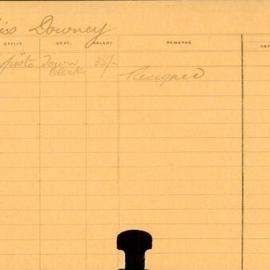 iss Downey
OFFICE DEPT. SALARY REMARKS
Town 25/-
Clerks Resigned